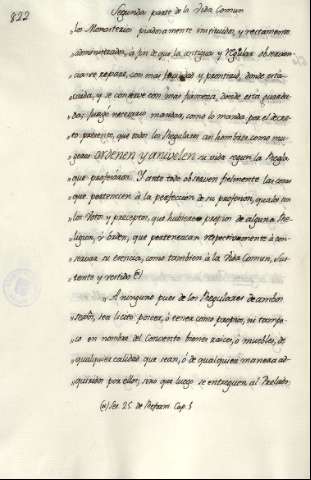 822
Segunda parte de la Vida Comun
„los Monasterios piadosamente instituidos, y rectamente
„administrados, a fin de que la antigua y regular observan
„cia se repare, con mas y prontitud, donde está
„caida, y se conserve con mas firmeza, donde está guarda
„da; juzgó necesario mandar, como lo manda por el decre
„to presente, que todos los Regulares asi hombres como mu
„geres ordenen y anivelen su vida segun la Regla
„que profesaron. Y ante todo observen fielmente las cosas
„que pertenecen a la perfeccion de su profesion, quales son
„los Votos y preceptos, que hubiere propios de alguna Re
„ligion, ú orden, que pertenezcan respectivamente à con
„servar su esencia, como tambien à la Vida Comun, sus
„tento y vestido (a)
„A ninguno pues de los Regulares de ambos
„sexos, sea licito poseer, ó tener como proprios, ni tampo
„co en nombre del Convento bienes raices, ó muebles, de
„qualquier calidad que sean, ó de qualquiera manera ad
„quiridos por ellos; sino que luego se entreguen al Prelado,
(a) Ses. 25 de Reform Cap. 1